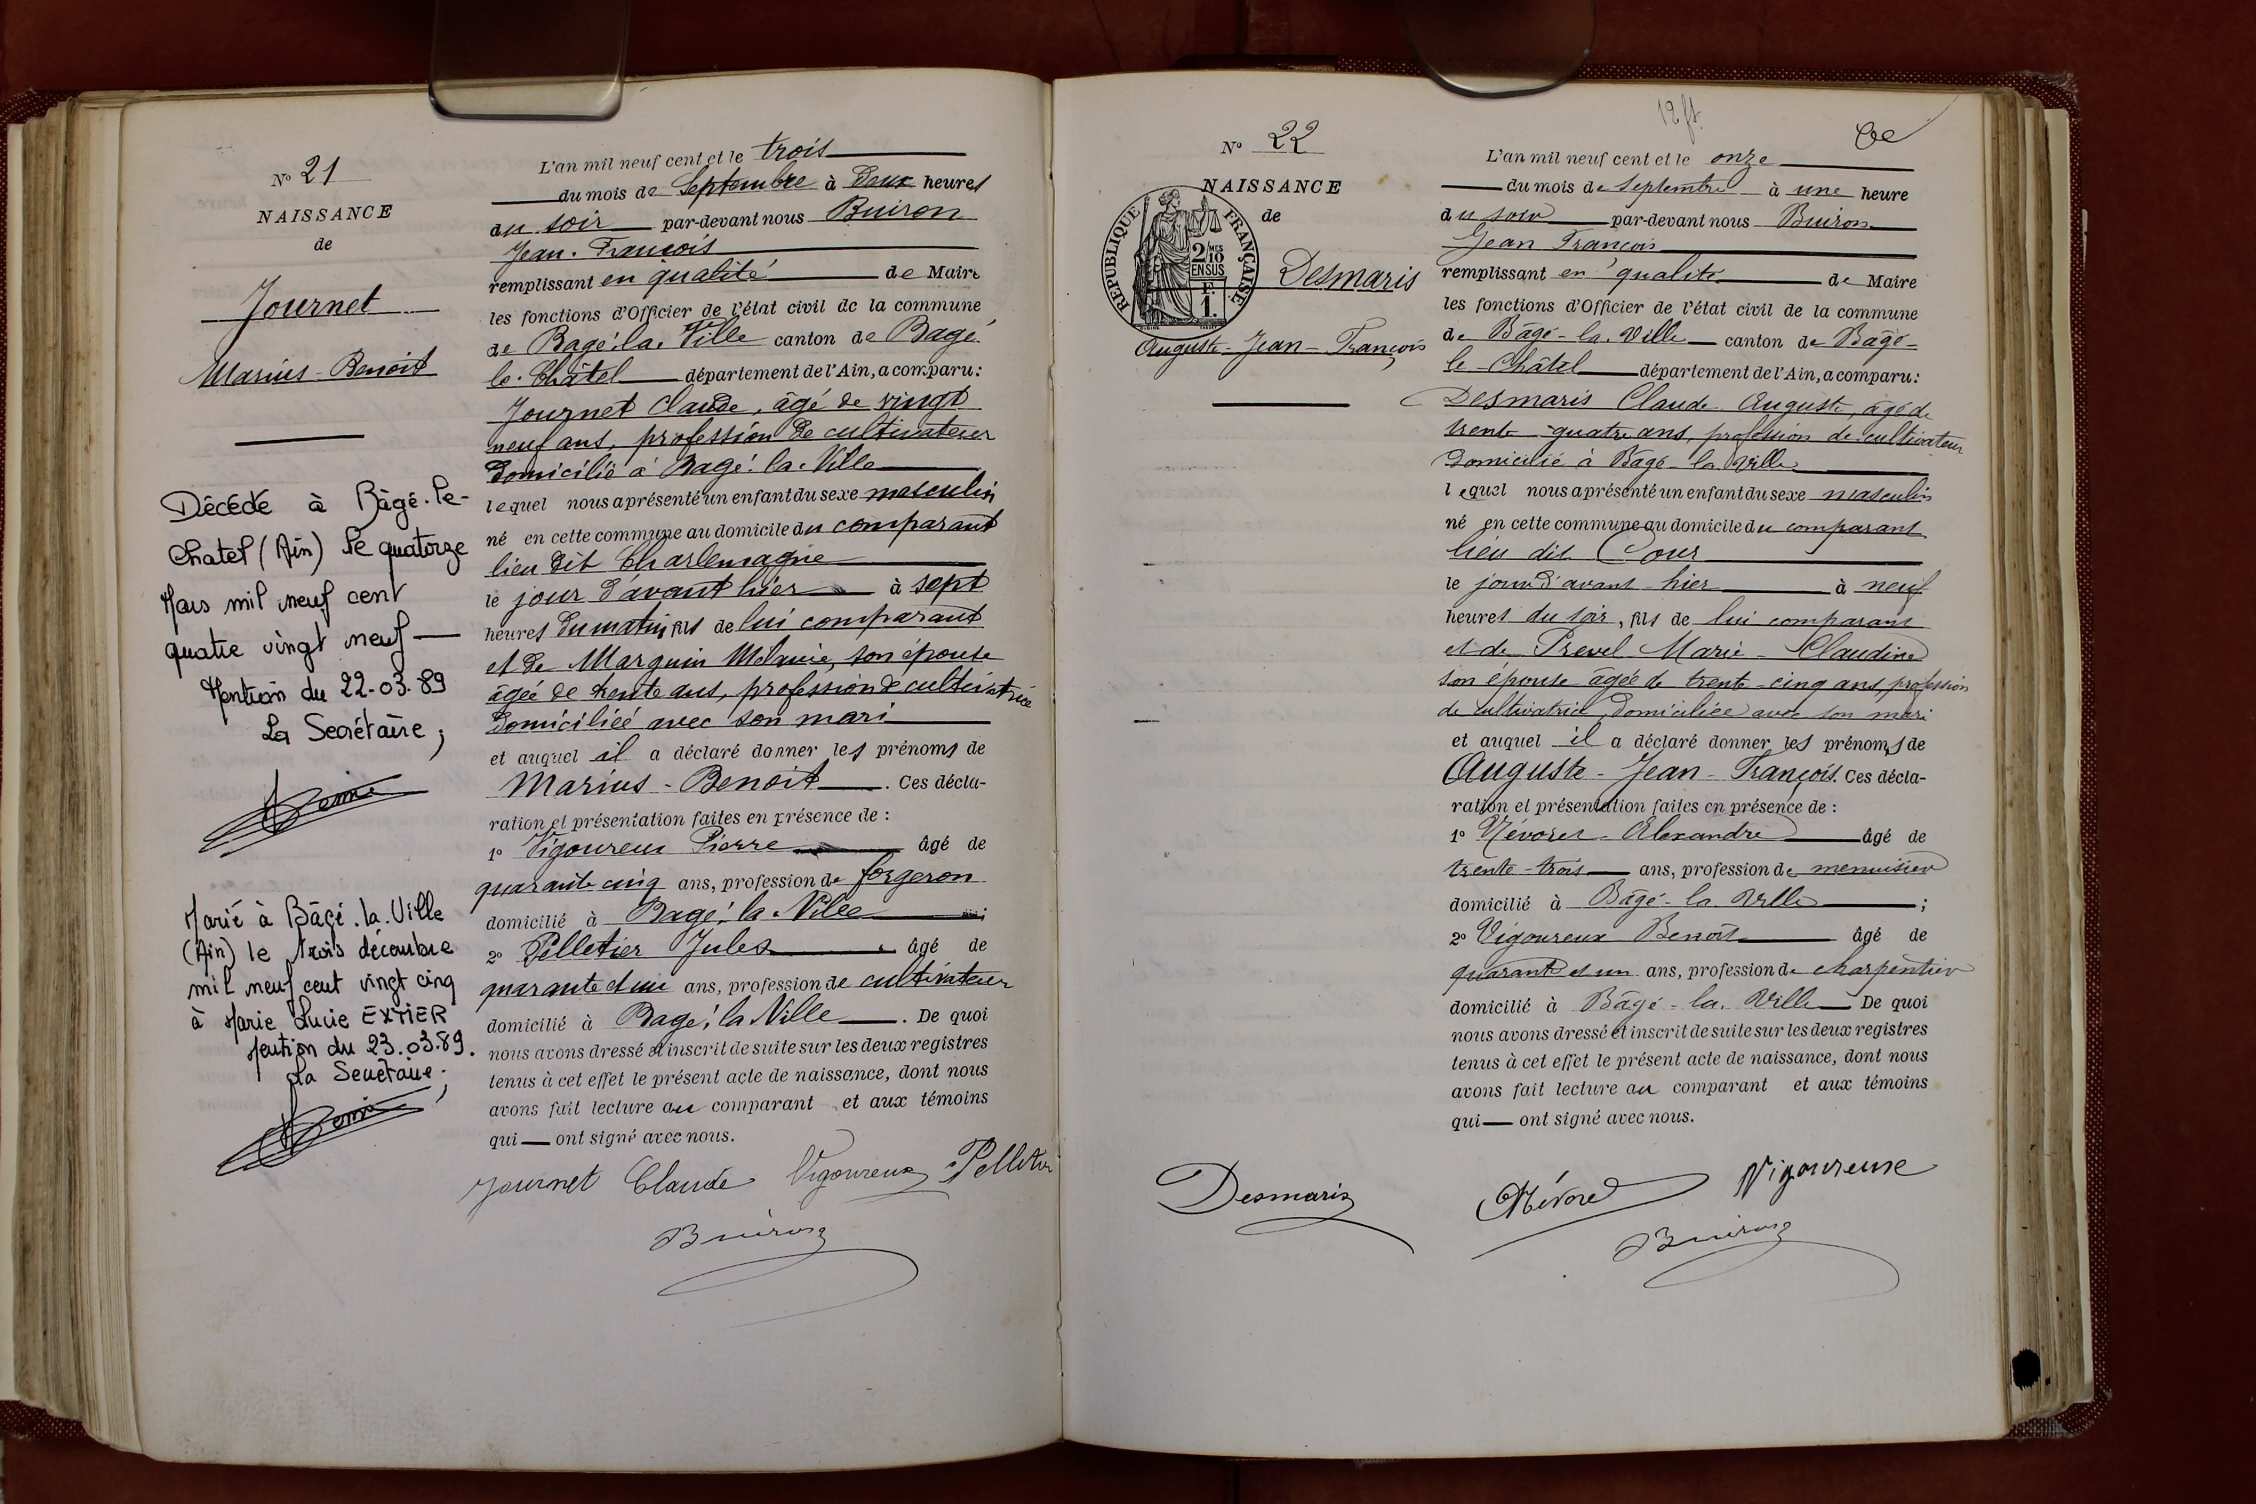 Nº 21
NAISSANCE
de
Journet
Marius-Benoit
Décédé à Bâgé.le-
Chatel (Ain) le quatorze
Mars mil neuf cent
quatre vingt neuf
Mention du 22-03.89
La Secrétaire,
Marié à Bâgé.la.Ville
(Ain) le trois décembre
mil neuf cent vingt cinq
à Marie Lucie EXTIER
Mention du 23.03.89.
La Secrétaire;
L'an mil neuf cent et le trois
du mois de Septembre à Deux heures
du soir par-devant nous Buiron
Jean. François
remplissant en qualité de Maire
les fonctions d'Officier de l'état civil de la commune
de Bagé. la. Ville canton de Bagé
le. Châtel département de l'Ain, a comparu:
Journet Claude, âgé de vingt
neuf ans, profession de cultivateur
domicilié à Bagé. la. Ville
lequel nous a présenté un enfant du sexe masculin
né en cette commune au domicile du comparant
lieu dit Charlemagne
le jour d'avant hier à sept
heures du matin, fils de lui comparant
et de Marguin Mélanie, son épouse
âgée de trente ans, profession de cultivatrice
domiciliée avec son mari
et auquel il a déclaré donner les prénoms de
Marius - Benoit. Ces décla-
ration et présentation faites en présence de :
1º Vigoureux Pierre âgé de
quarante cinq ans, profession de forgeron
domicilié à Bagé. la. Ville ;
2º Pelletier Jules âgé de
quarante et un ans, profession de cultivateur
domicilié à Bagé. la Ville. De quoi
nous avons dressé et inscrit de suite sur les deux registres
tenus à cet effet le présent acte de naissance, dont nous
avons fait lecture au comparant et aux témoins
qui — ont signé avec nous.
Journet Claude Vigoureux Pelletier
Buiron
Nº 22
NAISSANCE
de
RÉPUBLIQUE FRANÇAISE
2/10 MES
EN SUS
F.
1.
Desmaris
Auguste-Jean-François
12 ft.
L'an mil neuf cent et le onze
du mois de Septembre à une heure
du soir par-devant nous Buiron
Jean François
remplissant en qualité de Maire
les fonctions d'Officier de l'état civil de la commune
de Bâgé-la. Ville canton de Bâgé-
le-Châtel département de l'Ain, a comparu:
Desmaris Claude Auguste, âgé de
trente-quatre ans, profession de cultivateur
domicilié à Bâgé-la Ville
lequel nous a présenté un enfant du sexe masculin
né en cette commune au domicile du comparant
lieu dit Cour
le jour d'avant-hier à neuf
heures du soir, fils de lui comparant
et de Prevel Marie-Claudine
son épouse âgée de trente-cinq ans, profession
de cultivatrice domiciliée avec son mari
et auquel il a déclaré donner les prénoms de
Auguste-Jean-François. Ces décla-
ration et présentation faites en présence de :
1º Névoret Alexandre âgé de
trente-trois ans, profession de menuisier
domicilié à Bâgé-la Ville ;
2º Vigoureux Benoît âgé de
quarante et un ans, profession de charpentier
domicilié à Bâgé-la. Ville De quoi
nous avons dressé et inscrit de suite sur les deux registres
tenus à cet effet le présent acte de naissance, dont nous
avons fait lecture au comparant et aux témoins
qui — ont signé avec nous.
Desmaris Névoret Vigoureuse
Buiron